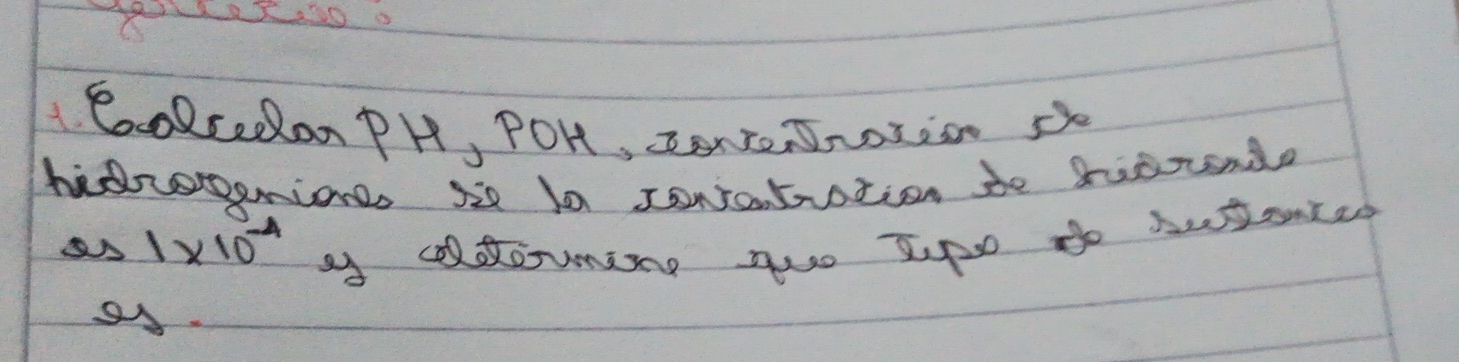 1. Calcular PH, POH, concentración de
hidrogeniones si la concentración de hidroxido
es 1x10⁻⁴ y determine que tipo de sustancia
es.